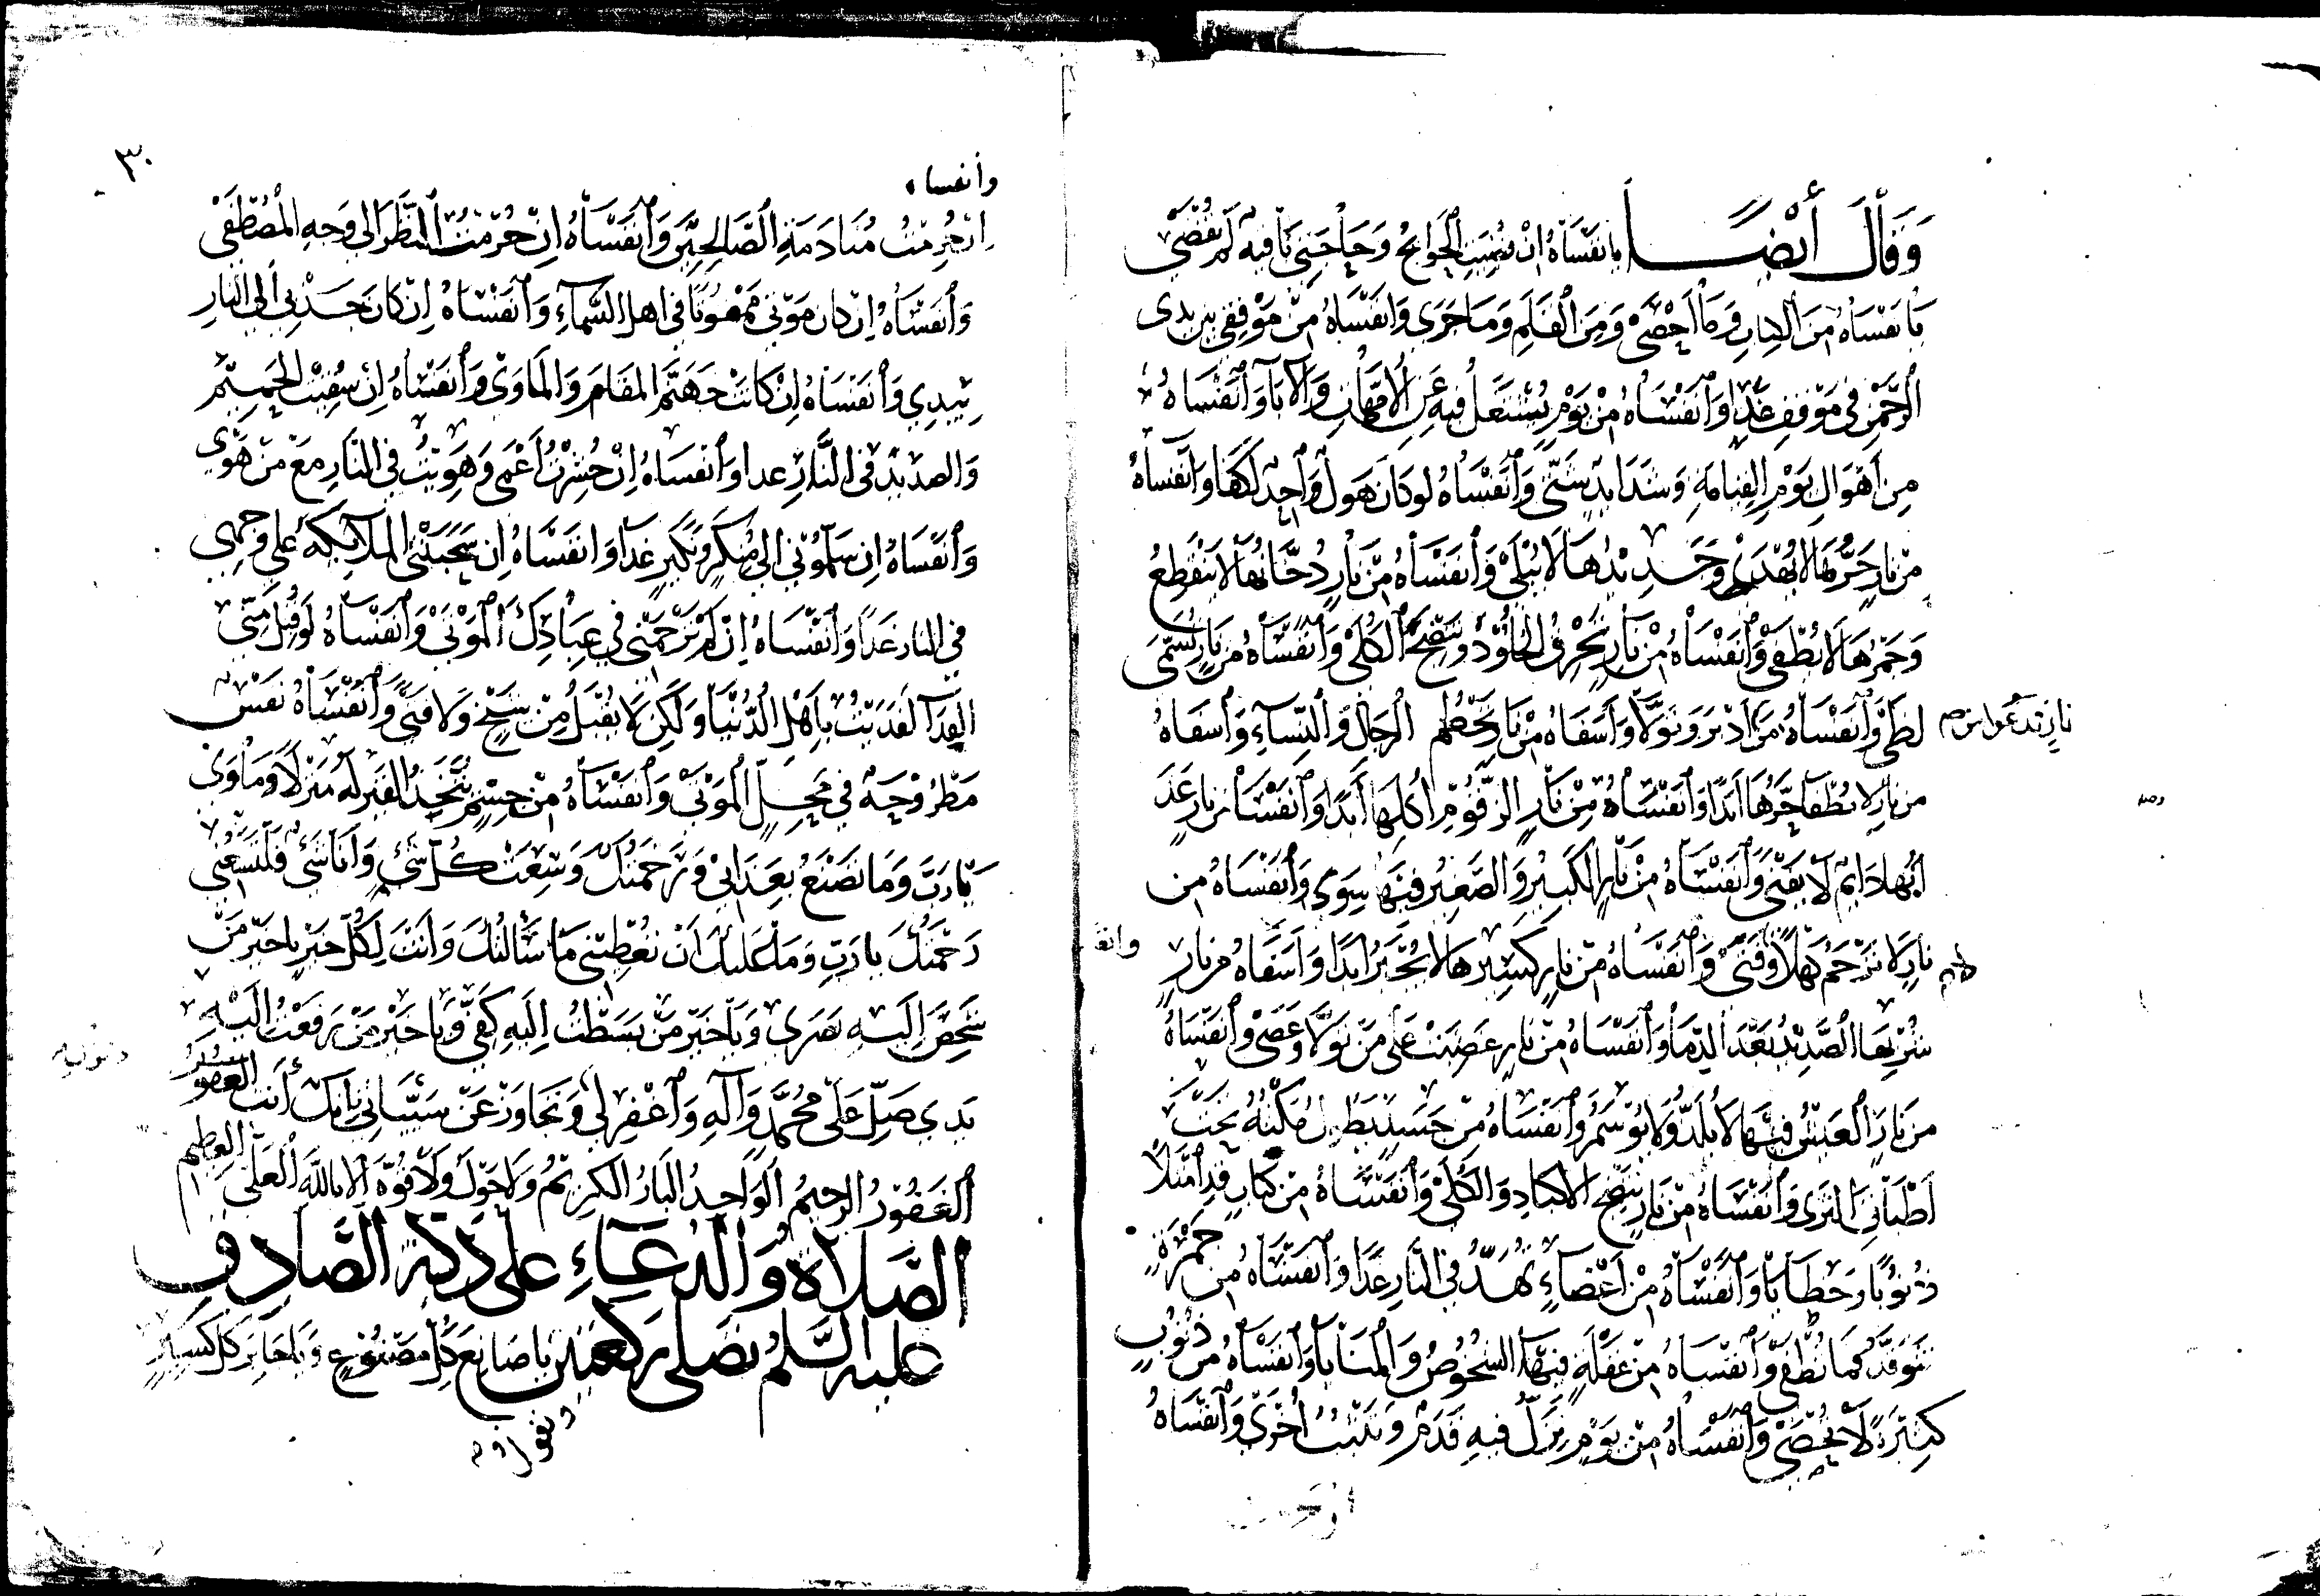 وَقَالَ أَيْضًا يا نَفْسَاهُ اِنْ قُضِيَتِ الْحَوَائِجُ وَحَاجَتِي يَا فِيهِ لَمْ تُقْضَى
يَا نَفْسَاهُ مِنَ الْكِتَابِ وَمَا اَحْصَى وَمِنَ الْقَلَمِ وَمَا جَرَى وَانَفْسَاهُ مِنْ مَوْقِفِي بَيْنَ يَدَى
الرَّحْمٰنِ فِى مَوْقِفِ غَدًا وَانَفْسَاهُ مِنْ يَوْمٍ يُشْتَغَلُ فِيهِ عَنِ الْاُمَّهَاتِ وَالْآبَا وَانَفْسَاهُ
مِنْ اَهْوَالِ يَوْمِ الْقِيَامَةِ وَشَدَايِدَ شَتَّى وَانَفْسَاهُ لَوْ كَانَ هَوْلٌ وَاحِدٌ لَكَفَا وَانَفْسَاهُ
مِنْ نَارٍ حَرُّهَا لَا يُهْدَى وَحَدِيدُهَا لَا يُبْلَى وَانَفْسَاهُ مِنْ نَارٍ دُخَانُهَا لَا يَنْقَطِعُ
وَجَمْرُهَا لَا يُطْفَى وَانَفْسَاهُ مِنْ نَارٍ تُحْرِقُ الْجُلُودَ وَتُنْضِجُ الْكُلَى وَانَفْسَاهُ مِنْ نَارٍ تُسَمَّى
لَظَى وَانَفْسَاهُ مِنْ نار تدعوا من اَدْبَرَ وَتَوَلَّا وَاَسَفَاهُ مِنْ نَارٍ تُحَطِّمُ الرِّجَالَ وَالنِّسَاءِ وَاَسَفَاهُ
مِنْ نَارٍ لَا يُطْفَا حَرُّهَا اَبَدًا وَانَفْسَاهُ مِنْ نَارٍ الزَّقُّومُ اُكُلُهَا اَبَدًا وَانَفْسَاهُ مِنْ نَارٍ عَذَ
ابُهَا دَايِمٌ لَا يَفْنَى وَانَفْسَاهُ مِنْ نَارٍ الْكَبِيرُ وَالصَّغِيرُ فِيهَا سِوَى وَانَفْسَاهُ مِنْ
نَارٍ لَا تَرْحَمُ كَهْلًا وَفَتَى وَانَفْسَاهُ مِنْ نَارٍ كَسِيرُهَا لَا يُجْبَرُ اَبَدًا وَاَسَفَاهُ مِنْ نَارٍ
شُرْبُهَا الصَّدِيدُ بَعْدَ الدِّمَا وَانَفْسَاهُ مِنْ نَارٍ غَضِبَتْ عَلَى مَنْ تَوَلَّا وَعَصَى وَانَفْسَاهُ
مِنْ نَارٍ الْعَيْشُ فِيهَا لَا يُلَذُّ وَلَا وَانَفْسَاهُ مِنْ جَسَدٍ يَطُولُ مَكْثُهُ تَحْتَ
اَطْبَاقِ الثَّرَى وَانَفْسَاهُ مِنْ نَارٍ تُنْضِجُ الْاَكْبَادَ وَالْكُلَى وَانَفْسَاهُ مِنْ كِتَابٍ قَدِ امْتَلَا
ذُنُوبًا وَخَطَايَا وَانَفْسَاهُ مِنْ اَعْضَاءٍ تُهَدُّ فِى النَّارِ غَدًا وَانَفْسَاهُ مِنْ جَمْرَةٍ
تَتَوَقَّدُ فَمَا تُطْفَى وَانَفْسَاهُ مِنْ غَفْلَةٍ فِيهَا الشُّخُوصُ وَالْمَنَايَا وَانَفْسَاهُ مِنْ ذُنُوبٍ
كَثِيرَةٍ لَا تُحْصَى وَانَفْسَاهُ مِنْ يَوْمٍ تَزِلُّ فِيهِ قَدَمٌ وَتَثْبُتُ اُخْرَى وَانَفْسَاهُ
٣٠
وانفساه
اِنْ حُرِمْتُ مُنَادَمَةِ الصَّالِحِينَ وَانَفْسَاهُ اِنْ حُرِمْتُ النَّظَرَ اِلَى وَجْهِ الْمُصْطَفَى
وَانَفْسَاهُ اِنْ كَانَ مَوْتِى مَمْقُوتًا فِى اَهْلِ السَّمَاءِ وَانَفْسَاهُ اِنْ كَانَ جَذْبِى اِلَى النَّارِ
بِيَدِى وَانَفْسَاهُ اِنْ كَانَتْ جَهَنَّمُ الْمَقَامَ وَالْمَاوَى وَانَفْسَاهُ اِنْ سُقِيتُ الْحَمِيمَ
وَالصَدِيدَ فِى النَّارِ غدا وَانَفْسَاهُ اِنْ حُشِرْتُ اَعْمَى وَهَوِيتُ فِى النَّارِ مَعَ مَنْ هَوَى
وَانَفْسَاهُ اِنْ سَلَّمُونِى اِلَى مُنْكَرٍ وَنَكِيرٍ غَدًا وَانَفْسَاهُ اِنْ سَحَبَتْنِى الْمَلَائِكَةُ عَلَى وَجْهِى
فِى النَّارِ غَدًا وَانَفْسَاهُ اِنْ لَمْ تَرْحَمْنِى فِى عِبَادِكَ الْمَوْتَى وَانَفْسَاهُ لَوْ قُبِلَ مِنِّى
الْفِدَا لَفَدَيْتُ بِاَهْلِ الدُّنْيَا وَلَكِنْ لَا يُقْبَلُ مِنْ شَيْخٍ وَلَا فَتَى وَانَفْسَاهُ نَفْسٌ
مَطْرُوحَةٌ فِى مَحَلِّ الْمَوْتَى وَانَفْسَاهُ مِنْ جِسْمٍ يَتَّخِذُ الْقَبْرَ لَهُ مَنْزِلًا وَمَاوَى
يَا رَبِّ وَمَا تَصْنَعُ بِعَذَابِى وَرَحْمَتُكَ وَسِعَتْ كُلَّ شَىءٍ وَاَنَا شَىءٌ فَلْتَسَعْنِى
رَحْمَتُكَ يَا رَبِّ وَمَا عَلَيْكَ اَنْ تُعْطِيَنِى مَا سَأَلْتُكَ وَاَنْتَ لِكُلِّ خَيْرٍ يَا خَيْرَ مَنْ
شَخَصَ اِلَيْهِ بَصَرِى وَيَا خَيْرَ مَنْ بَسَطْتُ اِلَيْهِ كَفِّى وَيَا خَيْرَ مَنْ رَفَعْتُ اِلَيْهِ
يَدِى صَلِّ عَلَى مُحَمَّدٍ وَآلِهِ وَاغْفِرْ لِى وَتَجَاوَزْ عَنْ سَيِّئَاتِى اِنَّكَ اَنْتَ العفو
الْغَفُورُ الرَّحِيمُ الْوَاحِدُ الْبَارُ الْكَرِيمُ وَلَا حَوْلَ وَلَا قُوَّةَ اِلَّا بِاللَّهِ الْعَلِىِّ العظيم
الصَّلَاةُ وَالدُّعَاءِ عَلَى دَكَّةِ الصَّادِقِ
عَلَيْهِ السَّلَمُ تُصَلِّى رَكْعَتَيْنِ يَا صَانِعَ كُلِّ مَصْنُوعٍ وَيَا جَابِرَ كُلِّ كَسِيرٍ
وتقول